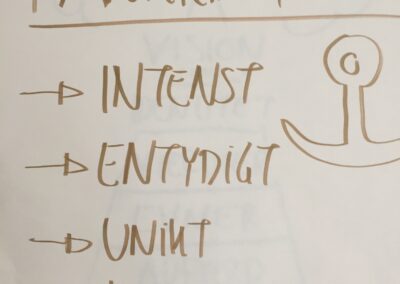 INTENST
ENTYDIGT
UNIKT